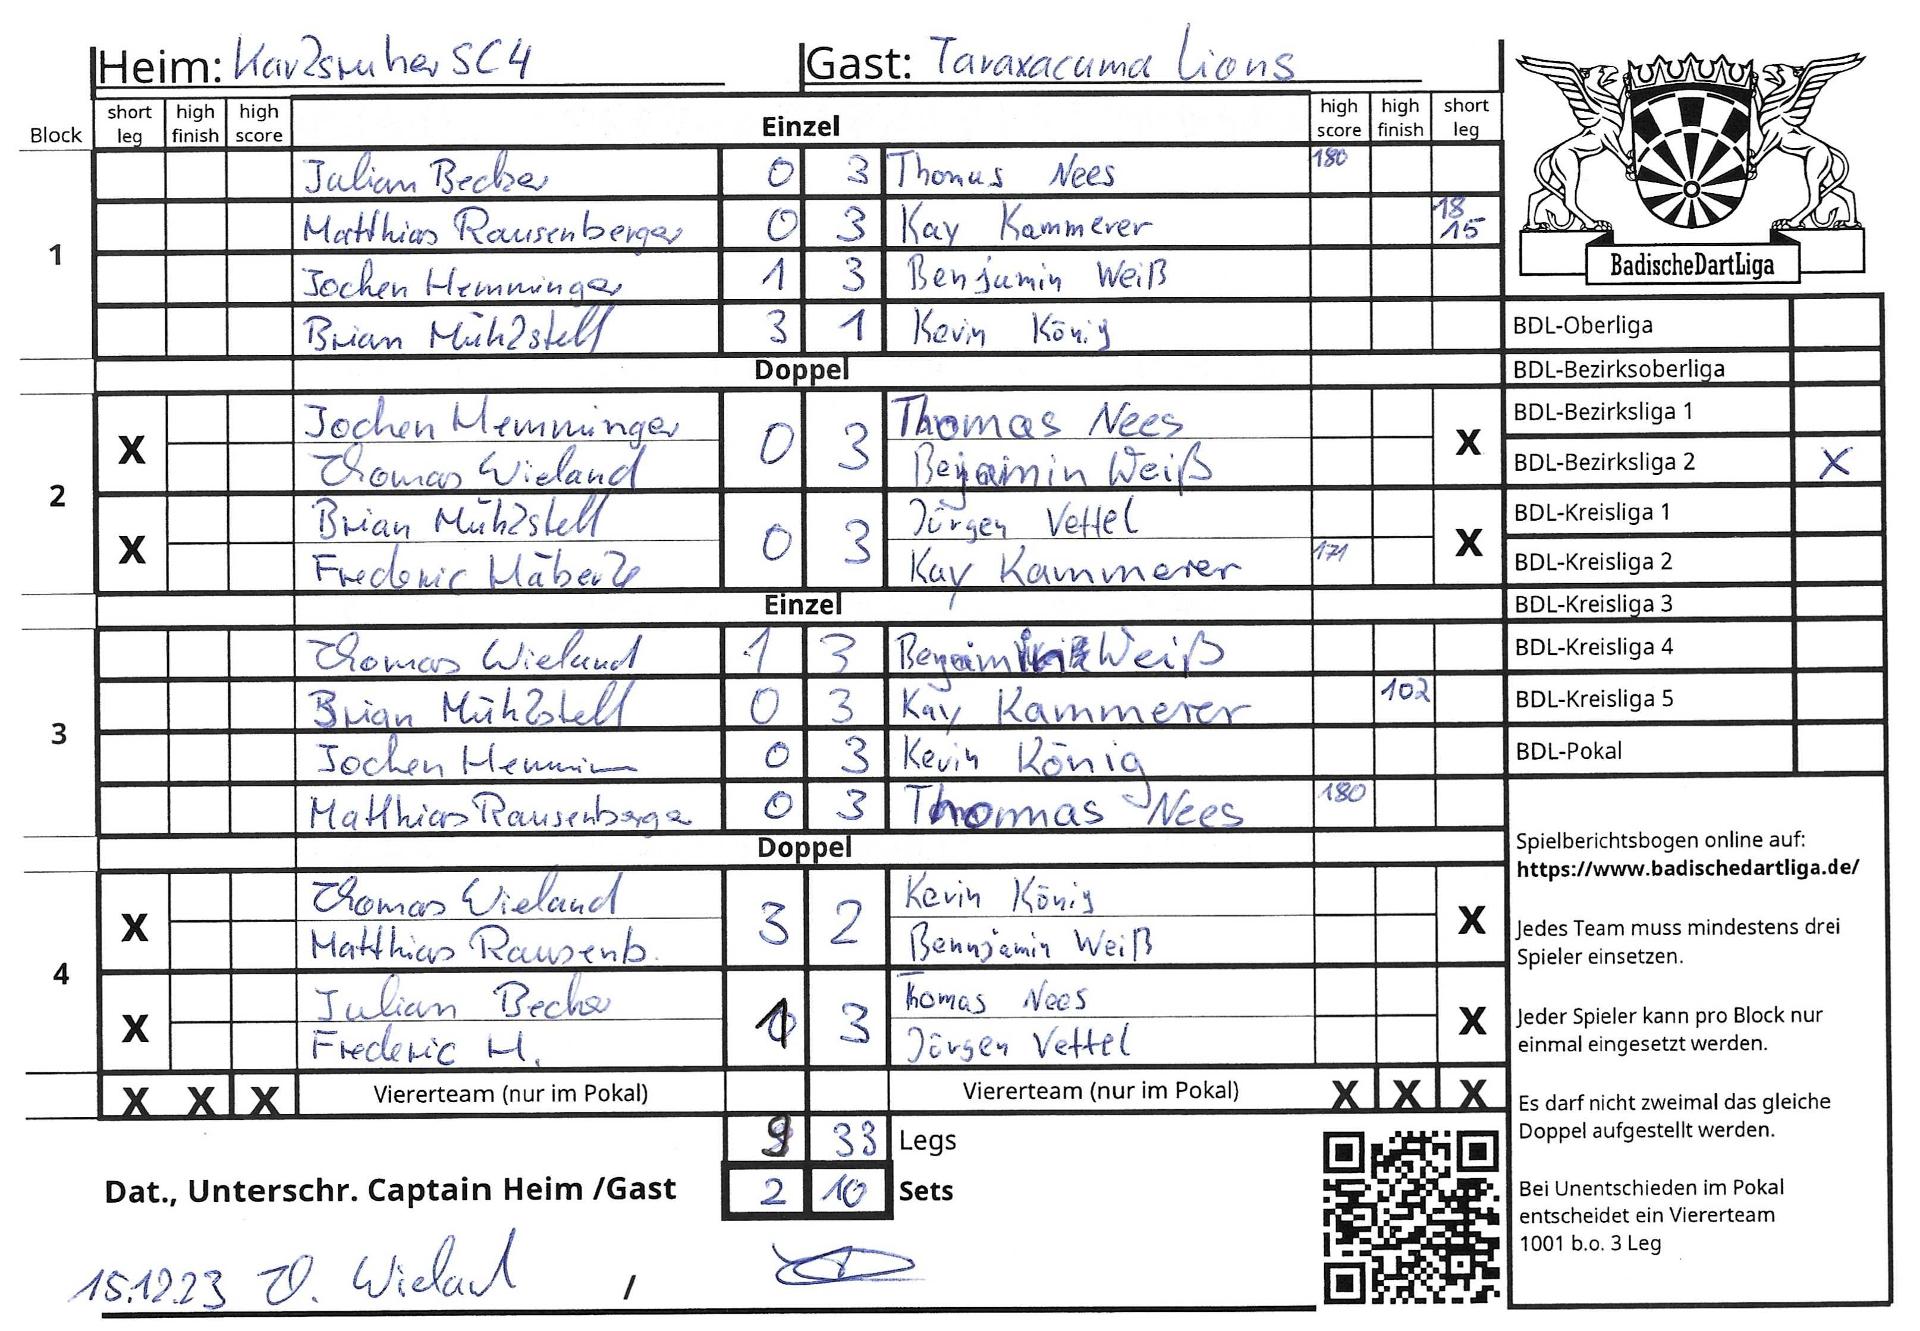 Heim: Karlsruher SC 4 Gast: Taraxacuma Lions
Block short leg high finish high score Einzel high score high finish short leg
1
Julian Becker 0 3 Thomas Nees 180
Matthias Rausenberger 0 3 Kay Kammerer 18 15
Jochen Hemminger 1 3 Benjamin Weiß
Brian Mühlstell 3 1 Kevin König
Doppel
2
X Jochen Hemminger 0 3 Thomas Nees X
Thomas Wieland Benjamin Weiß
X Brian Mühlstell 0 3 Jürgen Vettel X
Frederic Häberle Kay Kammerer 171
Einzel
3
Thomas Wieland 1 3 Benjamin Weiß
Brian Mühlstell 0 3 Kay Kammerer 102
Jochen Hemmin 0 3 Kevin König
Matthias Rausenberger 0 3 Thomas Nees 180
Doppel
4
X Thomas Wieland 3 2 Kevin König X
Matthias Rausenb. Bennjamin Weiß
X Julian Becker 1 3 Thomas Nees X
Frederic H. Jürgen Vettel
X X X Viererteam (nur im Pokal) Viererteam (nur im Pokal) X X X
9 33 Legs
Dat., Unterschr. Captain Heim /Gast 2 10 Sets
15.12.23 T. Wieland /
BadischeDartLiga
BDL-Oberliga
BDL-Bezirksoberliga
BDL-Bezirksliga 1
BDL-Bezirksliga 2 X
BDL-Kreisliga 1
BDL-Kreisliga 2
BDL-Kreisliga 3
BDL-Kreisliga 4
BDL-Kreisliga 5
BDL-Pokal
Spielberichtsbogen online auf:
https://www.badischedartliga.de/
Jedes Team muss mindestens drei
Spieler einsetzen.
Jeder Spieler kann pro Block nur
einmal eingesetzt werden.
Es darf nicht zweimal das gleiche
Doppel aufgestellt werden.
Bei Unentschieden im Pokal
entscheidet ein Viererteam
1001 b.o. 3 Leg